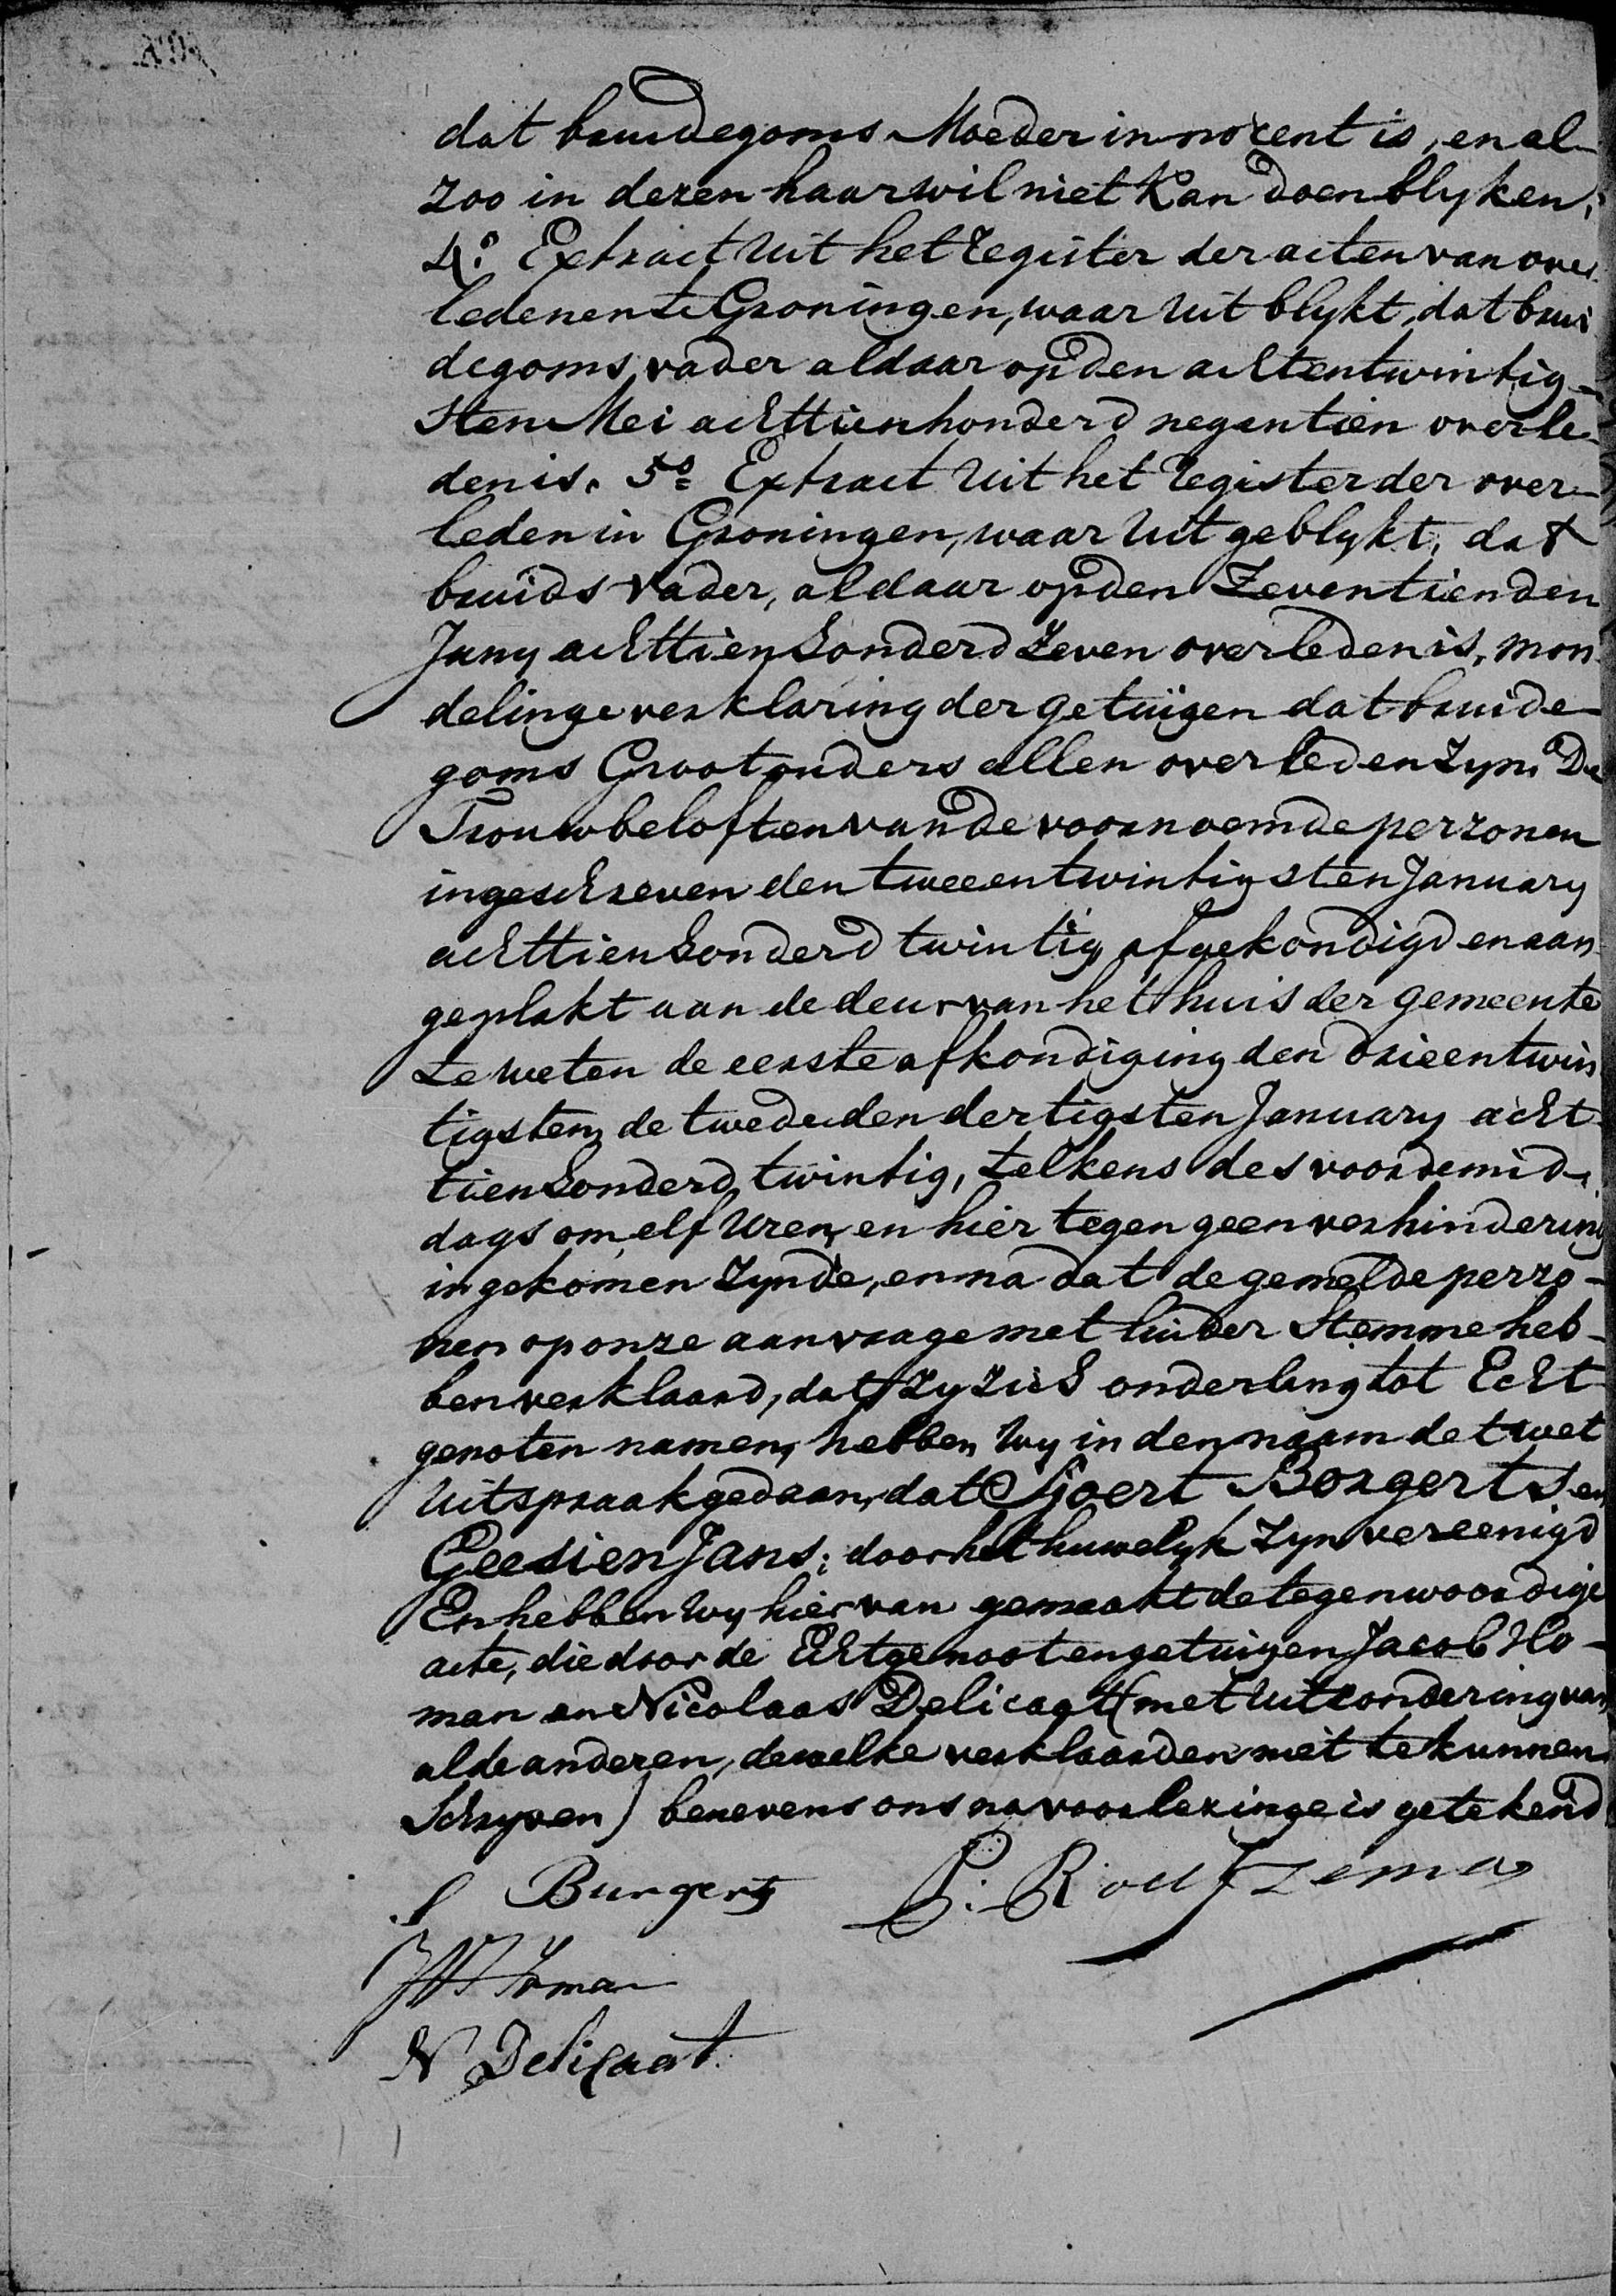 dat bruidegoms Moeder innozent is, en al-
zoo in dezen haar wil niet kan doen blyken;
4.º Extract uit het register der acten van over
ledenen te Groningen, waar uit blykt, dat brui
degoms vader aldaar op den achtentwintig-
sten Mei achttienhonderd negentien overle-
den is. 5º Extract uit het register der over-
leden in Groningen, waar uit geblykt, dat
bruids vader, aldaar op den zeventienden
Juny achttienhonderd zeven overleden is, mon
delinge verklaring der getuigen dat bruide-
goms Grootouders allen overleden zyn. De
Trouwbeloften van de voornoemde perzonen
ingeschreven den tweeentwintigsten January
achttienhonderd twintig afgekondigd en aan
geplakt aan de deur van het huis der gemeente
te weten de eerste afkondiging den drieentwin
tigsten, de twede den dertigsten January acht
tienhonderd twintig, telkens des voordemid-
dags om elf uren, en hier tegen geen verhindering
ingekomen zynde, en na dat de gemelde perzo-
nen op onze aanvraage met luider Stemme heb-
ben verklaard, dat zy zich onderling tot Echt
genoten namen, hebben wy in den naam de t wet
uitspraak gedaan, dat Sjoert Borgerts en
Geesien Jans; door het huwelyk zyn vereenigd
En hebben wy hier van gemaakt de tegenwoordige
acte, die door de Echtgenoot en getuigen Jacob Ho-
man en Nicolaas Delicaat (met uitzondering van
al de anderen, dewelke verklaarden niet te kunnen
Schryven) benevens ons na voorlezinge is getekend
S Burgerts P. Routzema
JW Homan
N Delicaat